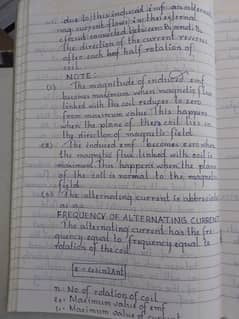 due to this induced emf an alternat-
ing current flows in the external
circuit connected between B1 and B2
The direction of the current reverses
after each half rotation of
coil.
NOTE:
(1) The magnitude of induced emf
becomes maximum when magnetic flux
linked with the coil reduces to zero
from maximum value. This happens
when the plane of the coil lies in
the direction of magnetic field.
(2) The induced emf becomes zero when
the magnetic flux linked with coil is
maximum. This happens when the plane
of the coil is normal to the magnetic
field.
(3) The alternating current is abbreviated
as ac.
FREQUENCY OF ALTERNATING CURRENT
The alternating current has the fre-
quency equal to frequency equal to
rotation of the coil
n = No of rotation of coil
Maximum value of emf
Maximum value of current